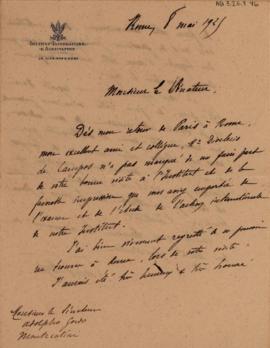 Rome, 8 mai 1925
INSTITUT INTERNATIONAL
D'AGRICULTURE
Monsieur le Sénateur
Dès mon retour de Paris à Rome,
mon excellent ami et collègue, Mr
de Campos n'a pas manqué de me faire part
de votre bonne visite à l'Institut et de la
impression que vous avez emportée de
l'examen et de l'étude de l'action internationale
de notre Institut.
J'ai bien vivement regretté de ne pouvoir
me trouver à Rome, lors de votre visite.
J'aurais été très heureux et très honoré
Monsieur le Sénateur
Adolpho Gordo
Montecatini